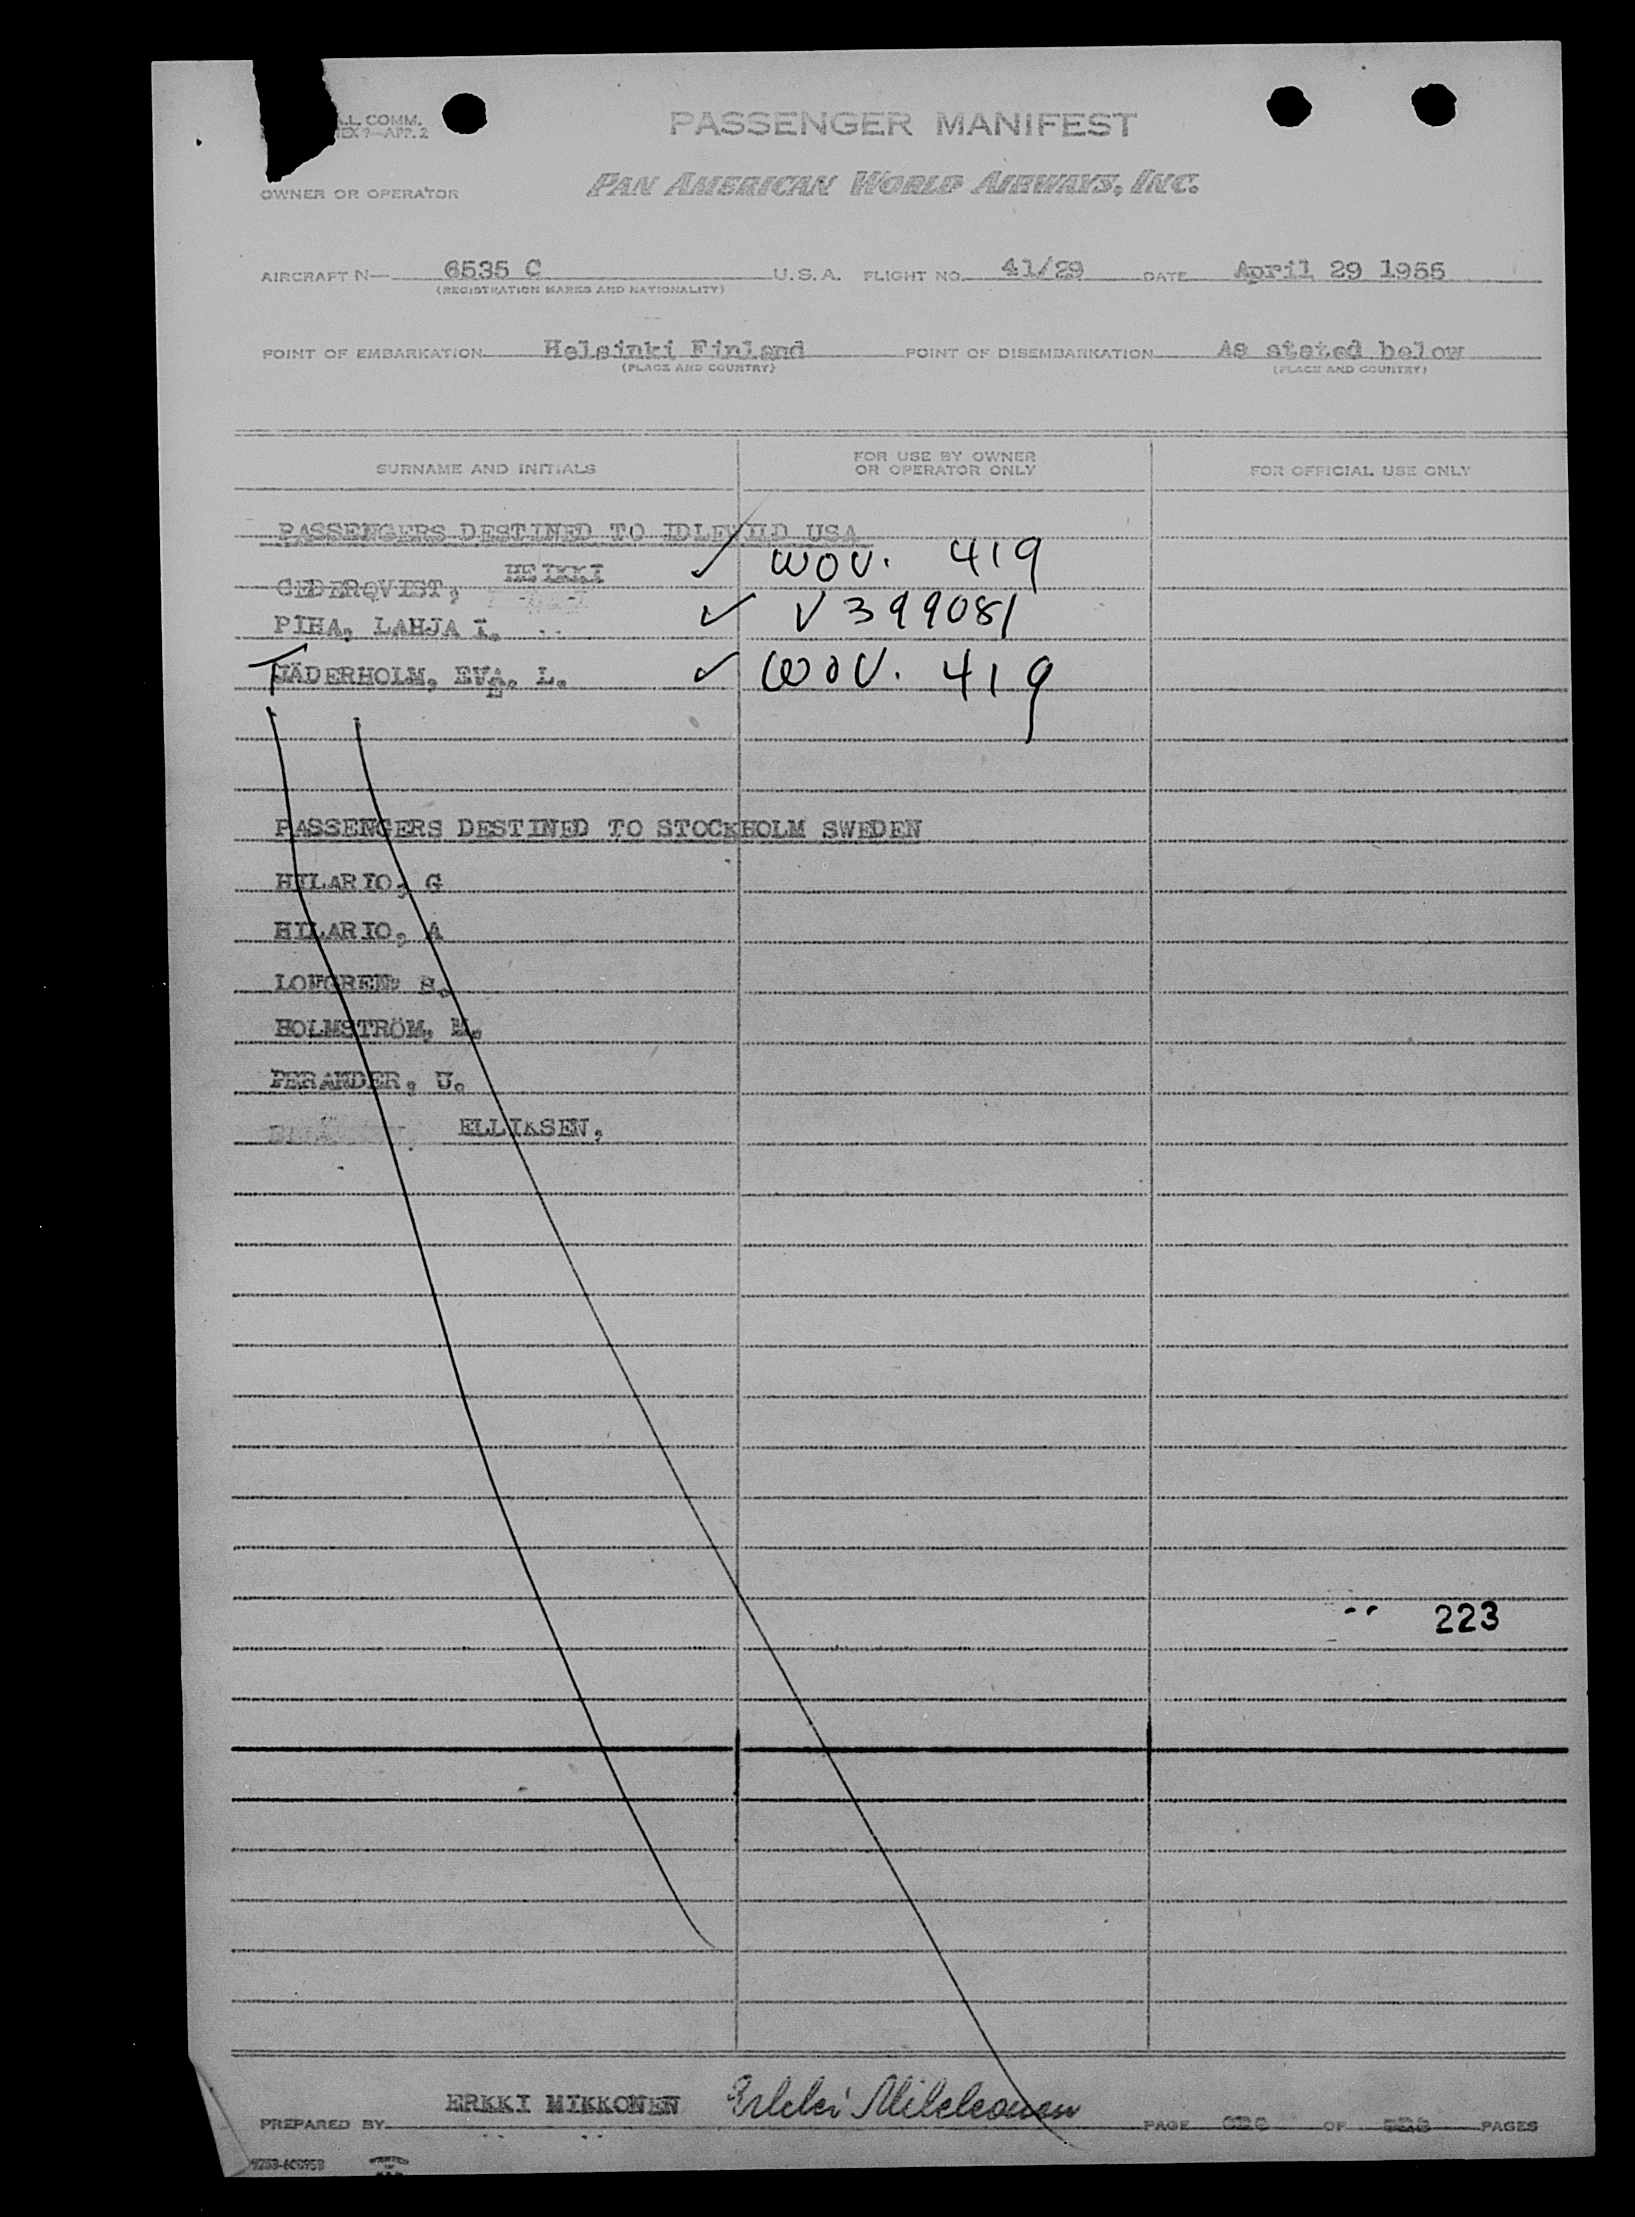 A.L. COMM.
EX 9—APP. 2
PASSENGER MANIFEST
OWNER OR OPERATOR PAN AMERICAN WORLD AIRWAYS, INC.
AIRCRAFT N— 6535 C U.S.A. FLIGHT NO. 41/29 DATE April 29 1955
(REGISTRATION MARKS AND NATIONALITY)
POINT OF EMBARKATION Helsinki Finland POINT OF DISEMBARKATION As stated below
(PLACE AND COUNTRY) (PLACE AND COUNTRY)
SURNAME AND INITIALS FOR USE BY OWNER OR OPERATOR ONLY FOR OFFICIAL USE ONLY
PASSENGERS DESTINED TO IDLEWILD USA
CEDERQVIST, HEIKKI ✓ WOV. 419
PIHA, LAHJA I. ✓ V399081
JÄDERHOLM, EVA. L. ✓ WOV. 419
PASSENGERS DESTINED TO STOCKHOLM SWEDEN
HILARIO, G
HILARIO, A
LOFGREN, S.
HOLMSTRÖM, M.
PERANDER, U.
ELLIKSEN,
223
ERKKI MIKKONEN Erkki Mikkonen
PREPARED BY PAGE OF PAGES